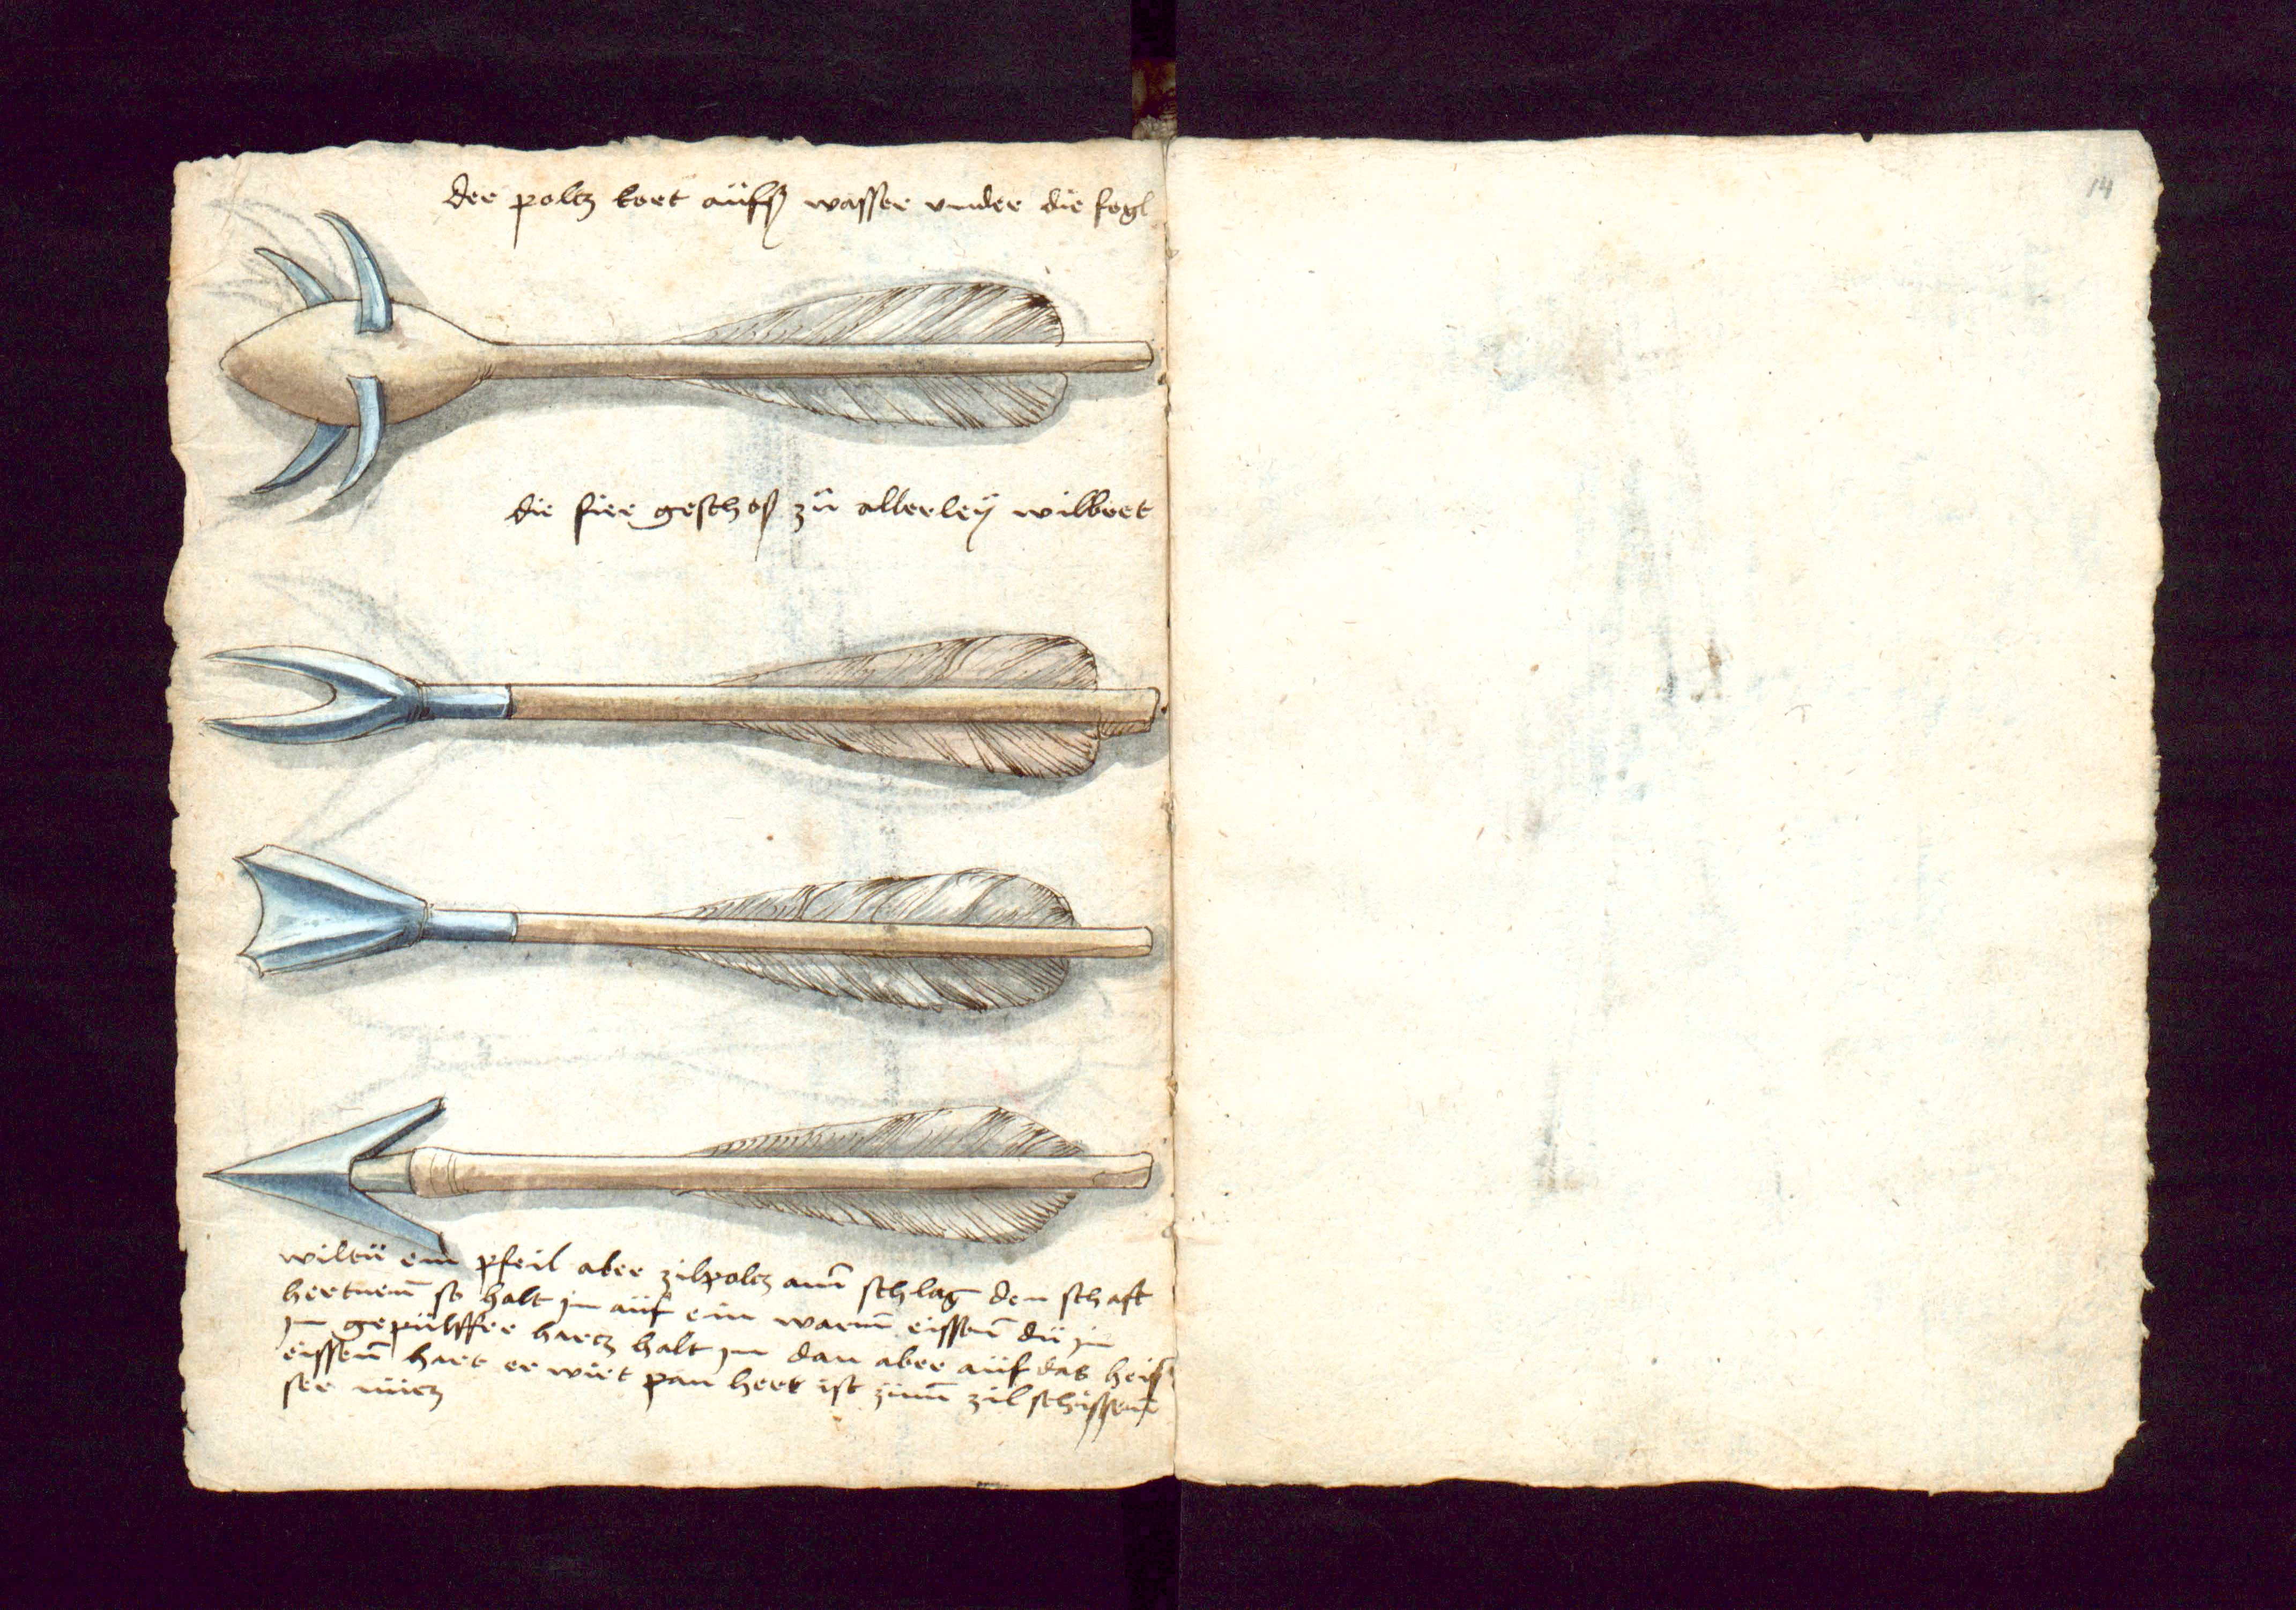 der poltz kort aüfs wasser vnder die fogl
14
die fier geschoß zů allerleÿ wilbret
wiltü ein pfeil aber zilpoltz am̄ schlag den schaft
hertnenn̄ so halt in aüf ein warm̄ eissenn̄ dü in
in gepülffer hartz halt in dan aber aüf das heis
eissenn̄ hart er wirt pan hert ist züm̄ zil schissenn̄
ser nütz